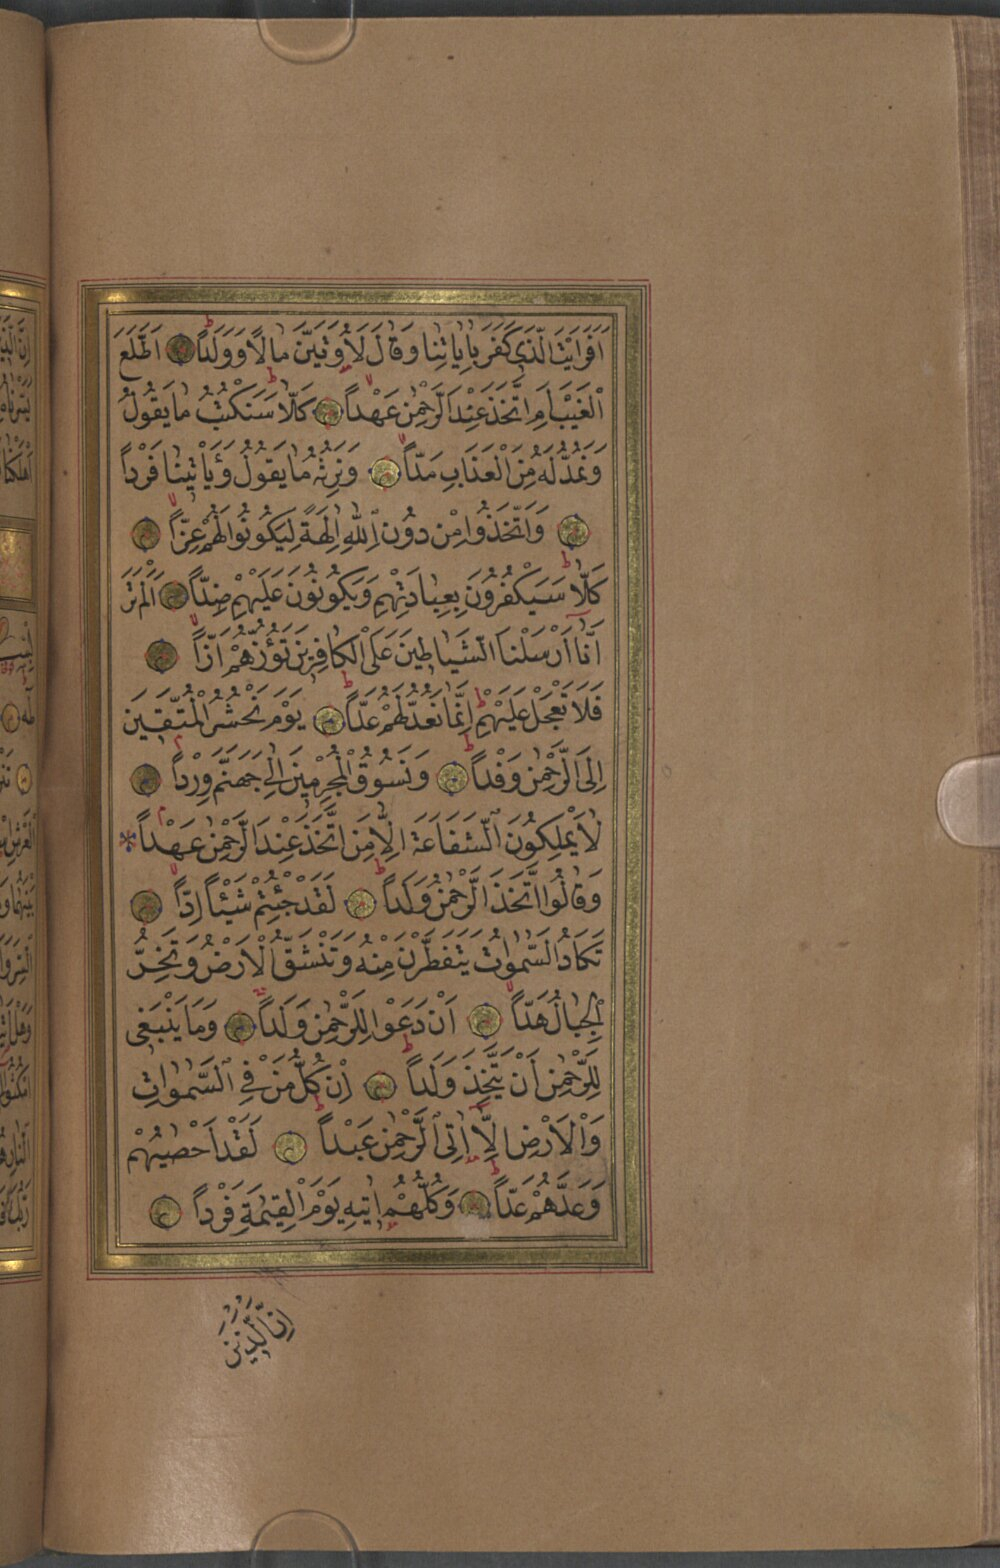 اَفَرَاَيْتَ الَّذٖي كَفَرَ بِاٰيَاتِنَا وَقَالَ لَاُوتَيَنَّ مَالًا وَوَلَدًا اَطَّلَعَ
الْغَيْبَ اَمِ اتَّخَذَ عِنْدَ الرَّحْمٰنِ عَهْدًا كَلَّا سَنَكْتُبُ مَا يَقُولُ
وَنَمُدُّ لَهُ مِنَ الْعَذَابِ مَدًّا وَنَرِثُهُ مَا يَقُولُ وَيَأْتٖينَا فَرْدًا
وَاتَّخَذُوا مِنْ دُونِ اللّٰهِ اٰلِهَةً لِيَكُونُوا لَهُمْ عِزًّا
كَلَّا سَيَكْفُرُونَ بِعِبَادَتِهِمْ وَيَكُونُونَ عَلَيْهِمْ ضِدًّا اَلَمْ تَرَ
اَنَّا اَرْسَلْنَا الشَّيَاطٖينَ عَلَى الْكَافِرٖينَ تَؤُزُّهُمْ اَزًّا
فَلَا تَعْجَلْ عَلَيْهِمْ اِنَّمَا نَعُدُّ لَهُمْ عَدًّا يَوْمَ نَحْشُرُ الْمُتَّقٖينَ
اِلَى الرَّحْمٰنِ وَفْدًا وَنَسُوقُ الْمُجْرِمٖينَ اِلٰى جَهَنَّمَ وِرْدًا
لَا يَمْلِكُونَ الشَّفَاعَةَ اِلَّا مَنِ اتَّخَذَ عِنْدَ الرَّحْمٰنِ عَهْدًا
وَقَالُوا اتَّخَذَ الرَّحْمٰنُ وَلَدًا لَقَدْ جِئْتُمْ شَيْئًا اِدًّا
تَكَادُ السَّمٰوَاتُ يَتَفَطَّرْنَ مِنْهُ وَتَنْشَقُّ الْاَرْضُ وَتَخِرُّ
الْجِبَالُ هَدًّا اَنْ دَعَوْا لِلرَّحْمٰنِ وَلَدًا وَمَا يَنْبَغٖي
لِلرَّحْمٰنِ اَنْ يَتَّخِذَ وَلَدًا اِنْ كُلُّ مَنْ فِي السَّمٰوَاتِ
وَالْاَرْضِ اِلَّا اٰتِي الرَّحْمٰنِ عَبْدًا لَقَدْ اَحْصٰيهُمْ
وَعَدَّهُمْ عَدًّا وَكُلُّهُمْ اٰتٖيهِ يَوْمَ الْقِيٰمَةِ فَرْدًا
اِنَّ الَّذٖينَ